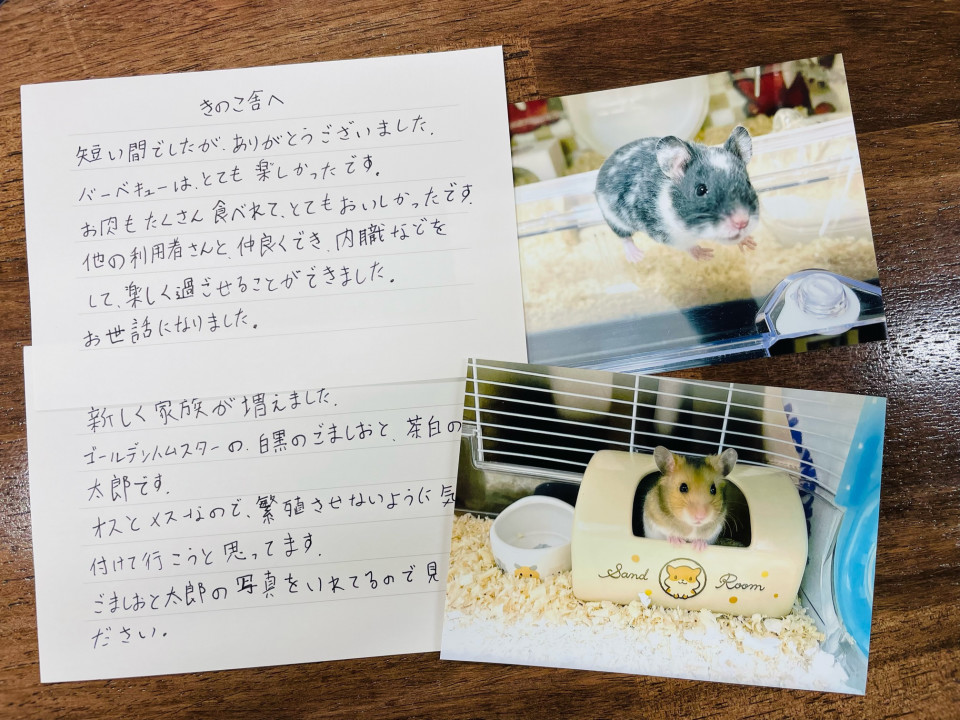 きのこ舎へ
短い間でしたが、ありがとうございました。
バーベキューは、とても楽しかったです。
お肉もたくさん食べれて、とてもおいしかったです。
他の利用者さんと、仲良くでき、内職などを
して、楽しく過ごせることができました。
お世話になりました。
新しく家族が増えました。
ゴールデンハムスターの、白黒のごましおと、茶白の
太郎です。
オスとメスなので、繁殖させないように気
付けて行こうと思ってます。
ごましおと太郎の写真をいれてるので見
ださい。
Sand Room